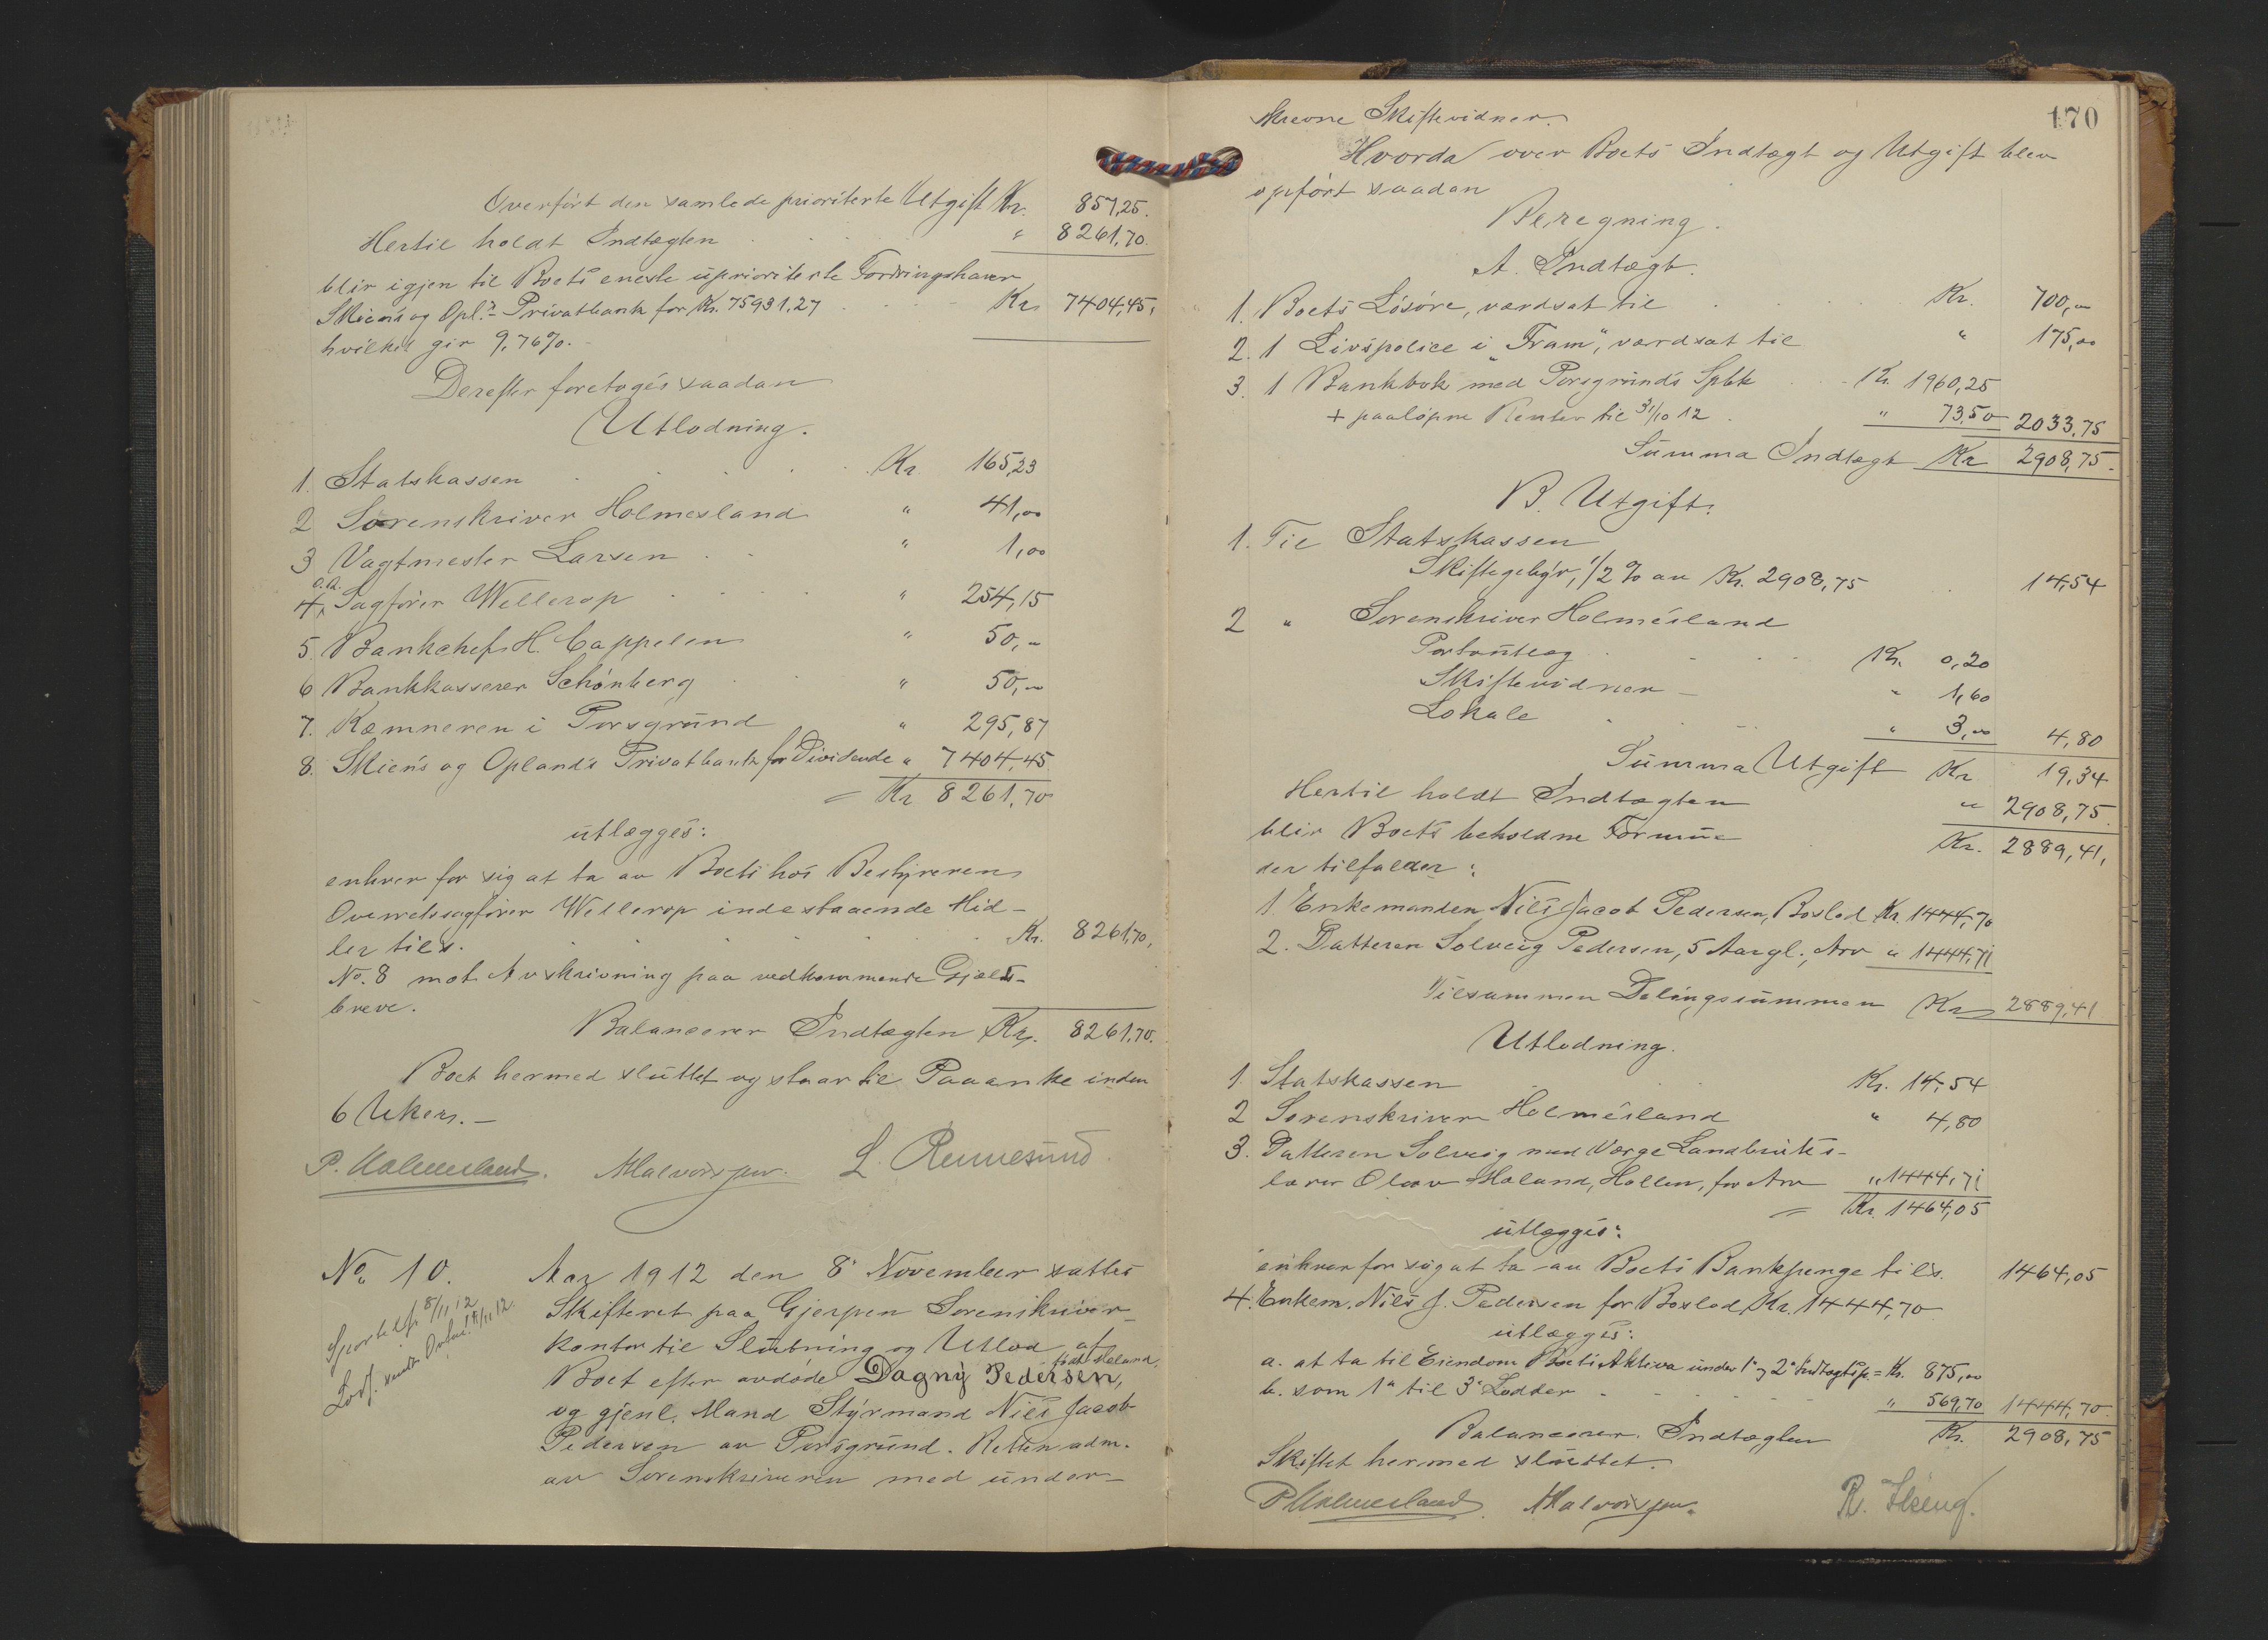 Overført den samlede prioriterte Utgift Kr. 857,25.
Hertil holdt Indtægten " 8261,70.
blir igjen til Boets eneste uprioriterte Fordringshaver
Skiens og Opl.s Privatbank for Kr. 75931,27 Kr. 7404,45,
hvilket gir 9,76%.
Derefter foretoges saadan
Utlodning.
1. Statskassen Kr. 165,23
2 Sorenskriver Holmesland " 41,00
3 Vagtmester Larsen " 1,00
o.r.
4, Sagfører Wellerop " 254,15
5. Bankchef H. Cappelen " 50,-
6 Bankkasserer Schönberg " 50,-
7. Kæmneren i Porsgrund " 295,87
8. Skiens og Oplands Privatbank for Dividende " 7404,45
= Kr 8261,70
utlægges:
enhver for sig at ta av Boets hos Bestyreren
Overretssagfører Wellerop indestaaende Mid-
ler tils. Kr. 8261,70,
No. 8 mot Avskrivning paa vedkommende Gjælds-
breve.
Balancerer Indtægten Kr. 8261,70.
Boet hermed sluttet og staar til Paaanke inden
6 Uker. -
P. Holmesland. AHalvorsen. L. Rennesund.
No. 10. Aar 1912 den 8' November sattes
Sportel 8/11 12
8/11 12.
Skifteret paa Gjerpen Sorenskriver-
kontor til Slutning og Utlod. af
Boet efter avdøde Dagny Pedersen, født Hæland,
og gjenl. Mand Styrmand Nils Jacob
Pedersen av Porsgrund. Retten adm.
av Sorenskriveren med under-
170
skrevne Skiftevidner.
Hvorda over Boets Indtægt og Utgift blev
opført saadan
Beregning.
A. Indtægt.
1. Boets Løsøre, værdsat til Kr. 700,-
2. 1 Livspolice i "Fram", værdsat til " 175,00
3. 1 Bankbok med Porsgrunds Spbk Kr. 1960,25
+ paaløpne Renter til 31/10 12 " 73,50 2033,75
Summa Indtægt Kr 2908,75.
B. Utgift.
1. Til Statskassen
Skiftegebyr, 1/2 % av Kr. 2908,75 14,54
2 " Sorenskriver Holmesland
Portoutlæg Kr. 0,20
Skiftevidner - " 1,60
Lokale " 3,00 4,80
Summa Utgift Kr. 19,34
Hertil holdt Indtægten " 2908,75.
blir Boets beholdne Formue Kr. 2889,41,
der tilfalder:
1. Enkemanden Nils Jacob Pedersen, Boslod Kr. 1444,70
2. Datteren Solveig Pedersen, 5 Aar gl., Arv " 1444,71
Tilsammen Delingssummen Kr 2889,41
Utlodning.
1. Statskassen Kr. 14,54
2 Sorenskriver Holmesland " 4,80
3. Datteren Solveig ved Værge Landbruks-
lærer Olav Hæland, Hollen, for Arv " 1444,71
= Kr. 1464,05
utlægges:
enhver for sig at ta av Boets Bankpenge tils. 1464,05
4. Enkem. Nils J. Pedersen for Boslod Kr. 1444,70
utlægges:
a. at ta til Eiendom Boets Aktiva under 1' og 2' Indtægtsp. = Kr. 875,00
b. som 1' til 3' Lodder " 569,70 1444,70.
Balancerer Indtægten Kr. 2908,75
Skiftet hermed sluttet.
P Holmesland. AHalvorsen.